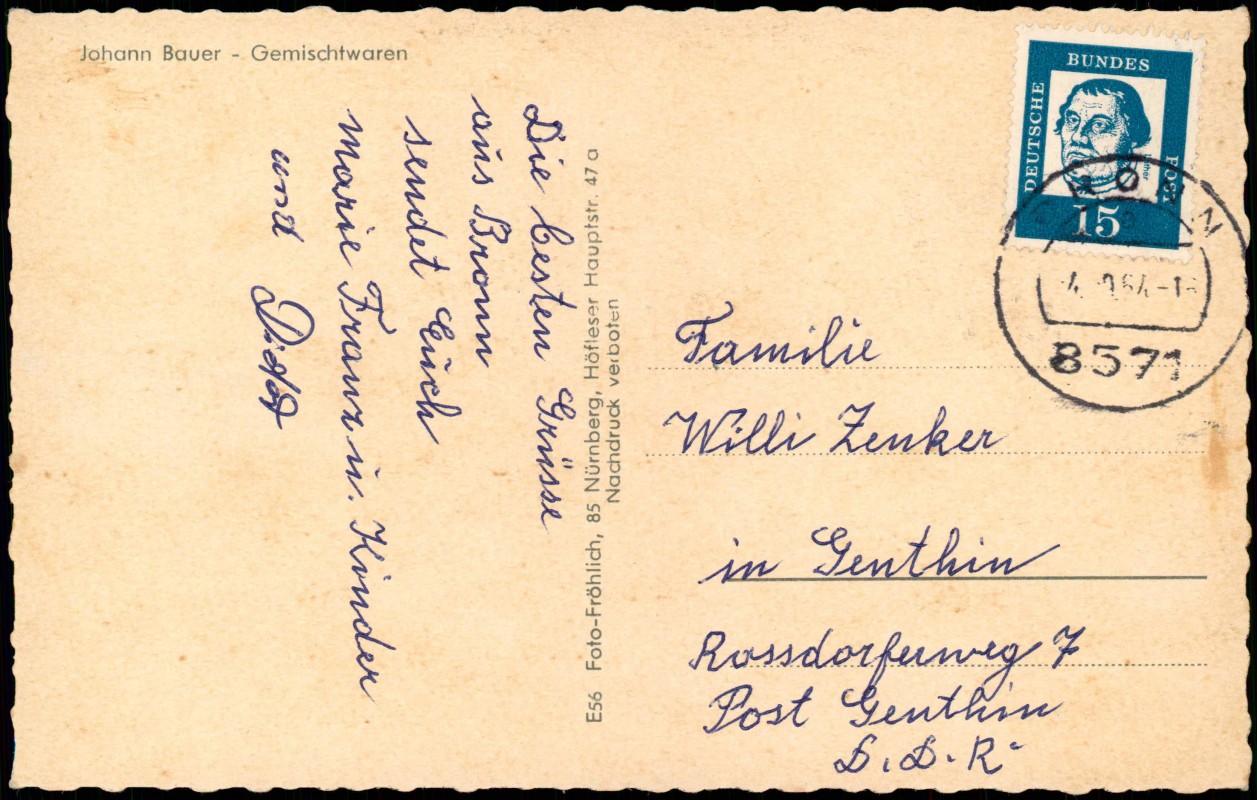 Johann Bauer - Gemischtwaren
Die besten Grüsse
aus Bronn
sendet Euch
Marie Franz u. Kinder
und
E56 Foto-Fröhlich, 85 Nürnberg, Höfleser Hauptstr. 47a
Nachdruck verboten
DEUTSCHE
BUNDES
POST
15
8571
Familie
Willi Zenker
in Genthin
Rossdorferweg 7
Post Genthin
D.D.R.